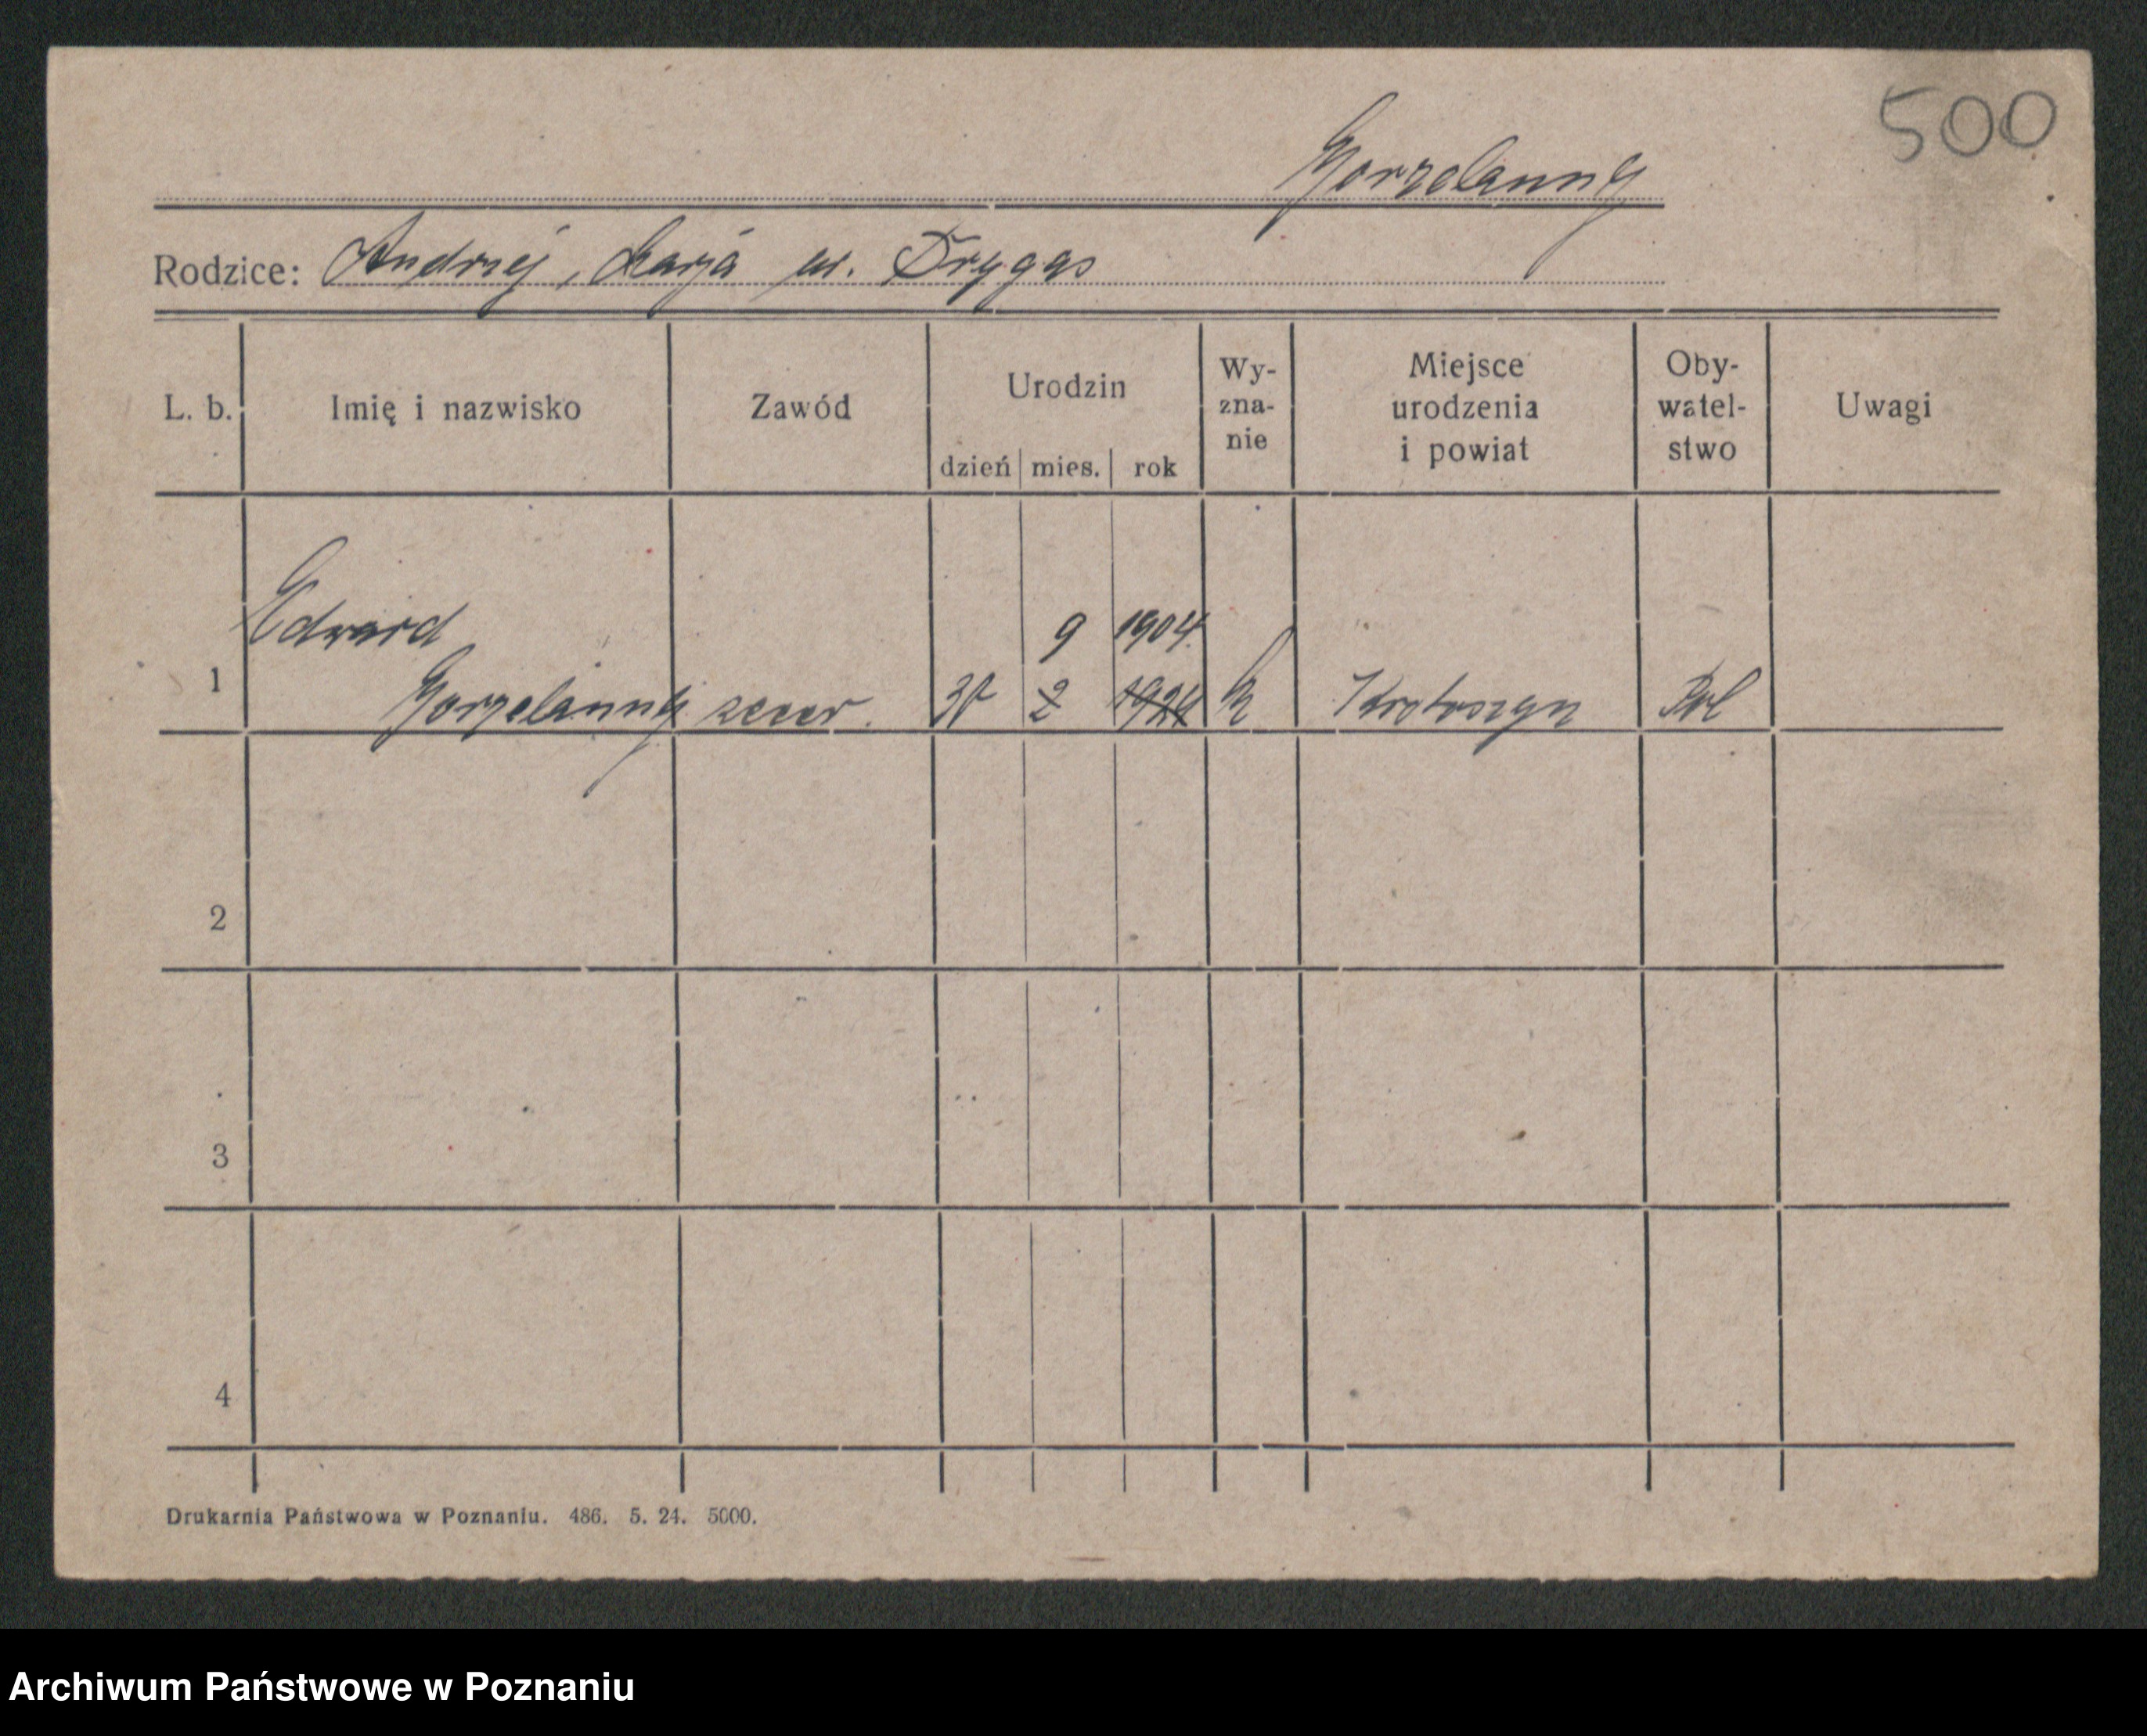 500
Gorzelanny
Rodzice: Andrzej, Marja ur. Drygas
L. b. Imię i nazwisko Zawód Urodzin dzień mies. rok Wy-zna-nie Miejsce urodzenia i powiat Oby-watel-stwo Uwagi
Edward 9 1904
1 Gorzelanny zecer. 2 1924 k Krotoszyn Pol
2
3
4
Drukarnia Państwowa w Poznaniu. 486. 5. 24. 5000.
Archiwum Państwowe w Poznaniu